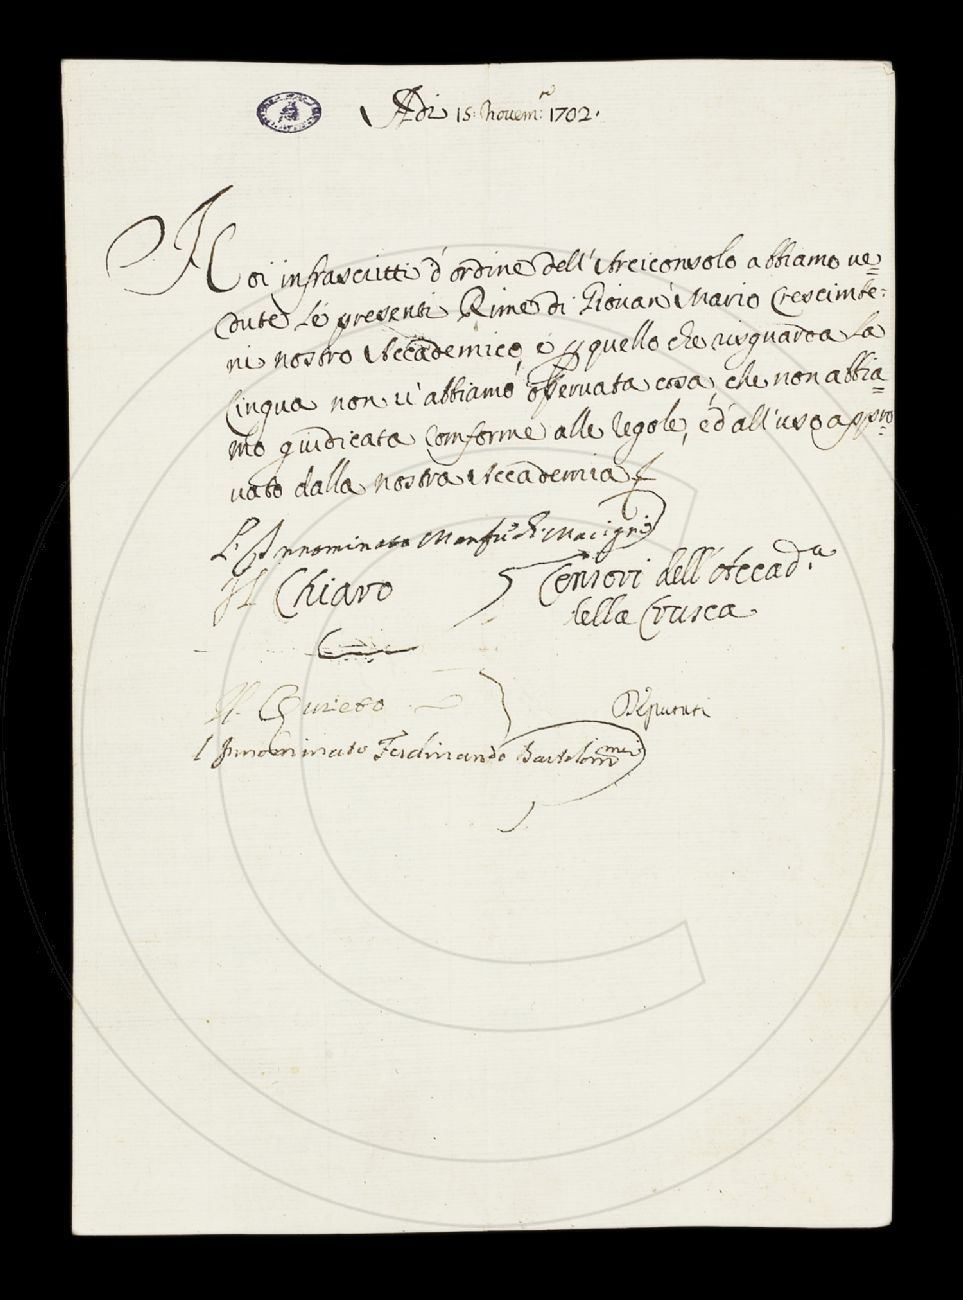 Adi 15. Novem.re 1702.
Noi infrascritti d'ordine dell'Arciconsolo abbiamo ve=
dute le presenti Rime di Giovan Mario Crescimbe=
ni nostro Accademico, e p quello che risguarda la
lingua non vi abbiamo osservata cosa, che non abbia=
mo giudicata conforme alle regole, e d all'uso appro=
vato dalla nostra Accademia
L'Innominato Macigni
Il Chiaro
Censori dell'Accad.a
della Crusca
Il
Deputati
L'Innominato Ferdinando Bartolommei